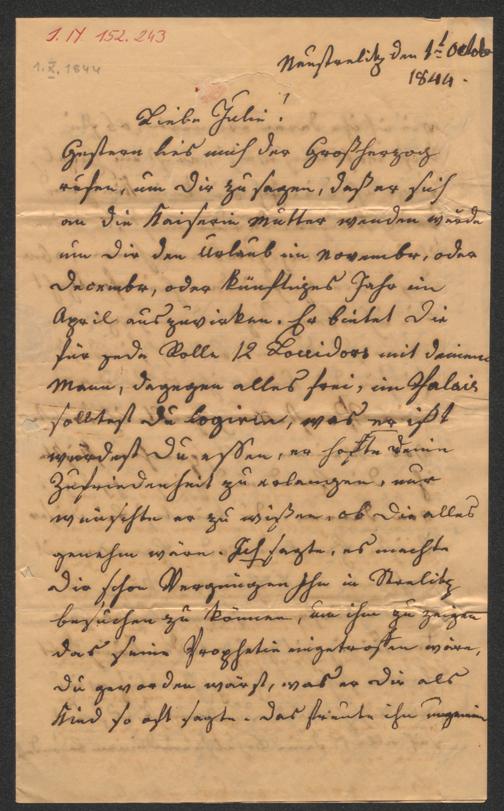 I. N. 152.243
1. X. 1844
Neustrelitz den 1t Octob
1844.
Liebe Julie!
Gestern lies mich der Großherzog
rufen, um Dir zu sagen, daß er sich
an die Kaiserin Mutter wenden würde
um Dir den Urlaub im Novembr, oder
Decembr, oder künftiges Jahr im
April auszuwirken. Er bietet Dir
für jede Rolle 12 Louidors mit deinem
Mann, dagegen alles frei, im Palais
solltest Du logiren, was er ißt
würdest Du essen, er hoffte deine
Zufriedenheit zu erlangen, nur
wünschte er zu wißen, ob Dir alles
genehm wäre. Ich sagte, es machte
Dir schon Vergnügen Ihn in Strelitz
besuchen zu können, um ihm zu zeigen
das seine Prophetin eingetroffen wäre,
Du geworden wärst, was er Dir als
Kind so oft sagte. Das freute ihn ungemein